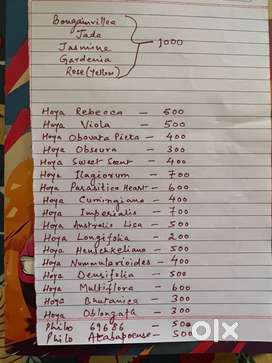 Bougainvillea
Jade
Jasmine
Gardenia
Rose (Yellow)
1000
Hoya Rebecca - 500
Hoya Viola - 500
Hoya Obovata Picta - 400
Hoya Obscura - 300
Hoya Sweet Scent - 400
Hoya Ilagiorum - 700
Hoya Parasitica Heart - 600
Hoya Cumingiana - 400
Hoya Imperialis - 700
Hoya Australis Lisa - 500
Hoya Longifolia - 200
Hoya Heuschkeliana - 500
Hoya Nummularioides - 400
Hoya Densifolia - 500
Hoya Multiflora - 600
Hoya Bhutanica - 300
Hoya Oblongata - 300
Philo 69686 - 500
Philo Atabapoense - 500
olx